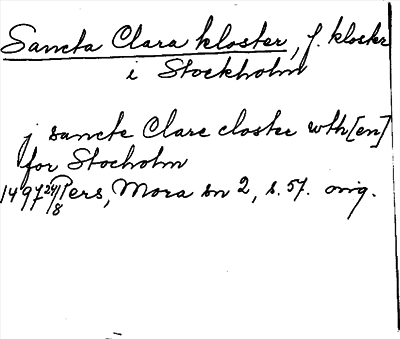 Sancta Clara kloster, f. kloster
i Stockholm
j sancte Clare closter wth[en]
for Stocholm
1497 24/8 Pers, Mora sn 2, s. 57. orig.